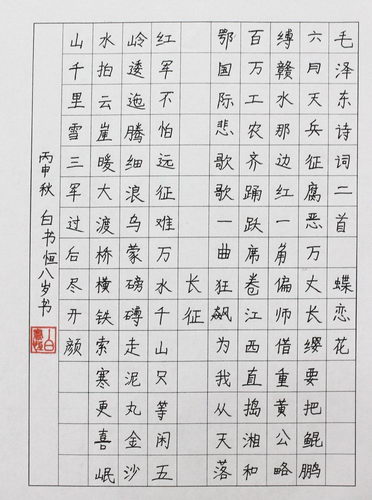 毛泽东诗词二首 蝶恋花
六月天兵征腐恶万丈长缨要把鲲鹏
缚赣水那边红一角偏师借重黄公略
百万工农齐踊跃席卷江西直捣湘和
鄂国际悲歌歌一曲狂飙为我从天落
长征
红军不怕远征难万水千山只等闲五
岭逶迤腾细浪乌蒙磅礴走泥丸金沙
水拍云崖暖大渡桥横铁索寒更喜岷
山千里雪三军过后尽开颜
丙申秋 白书恒八岁书